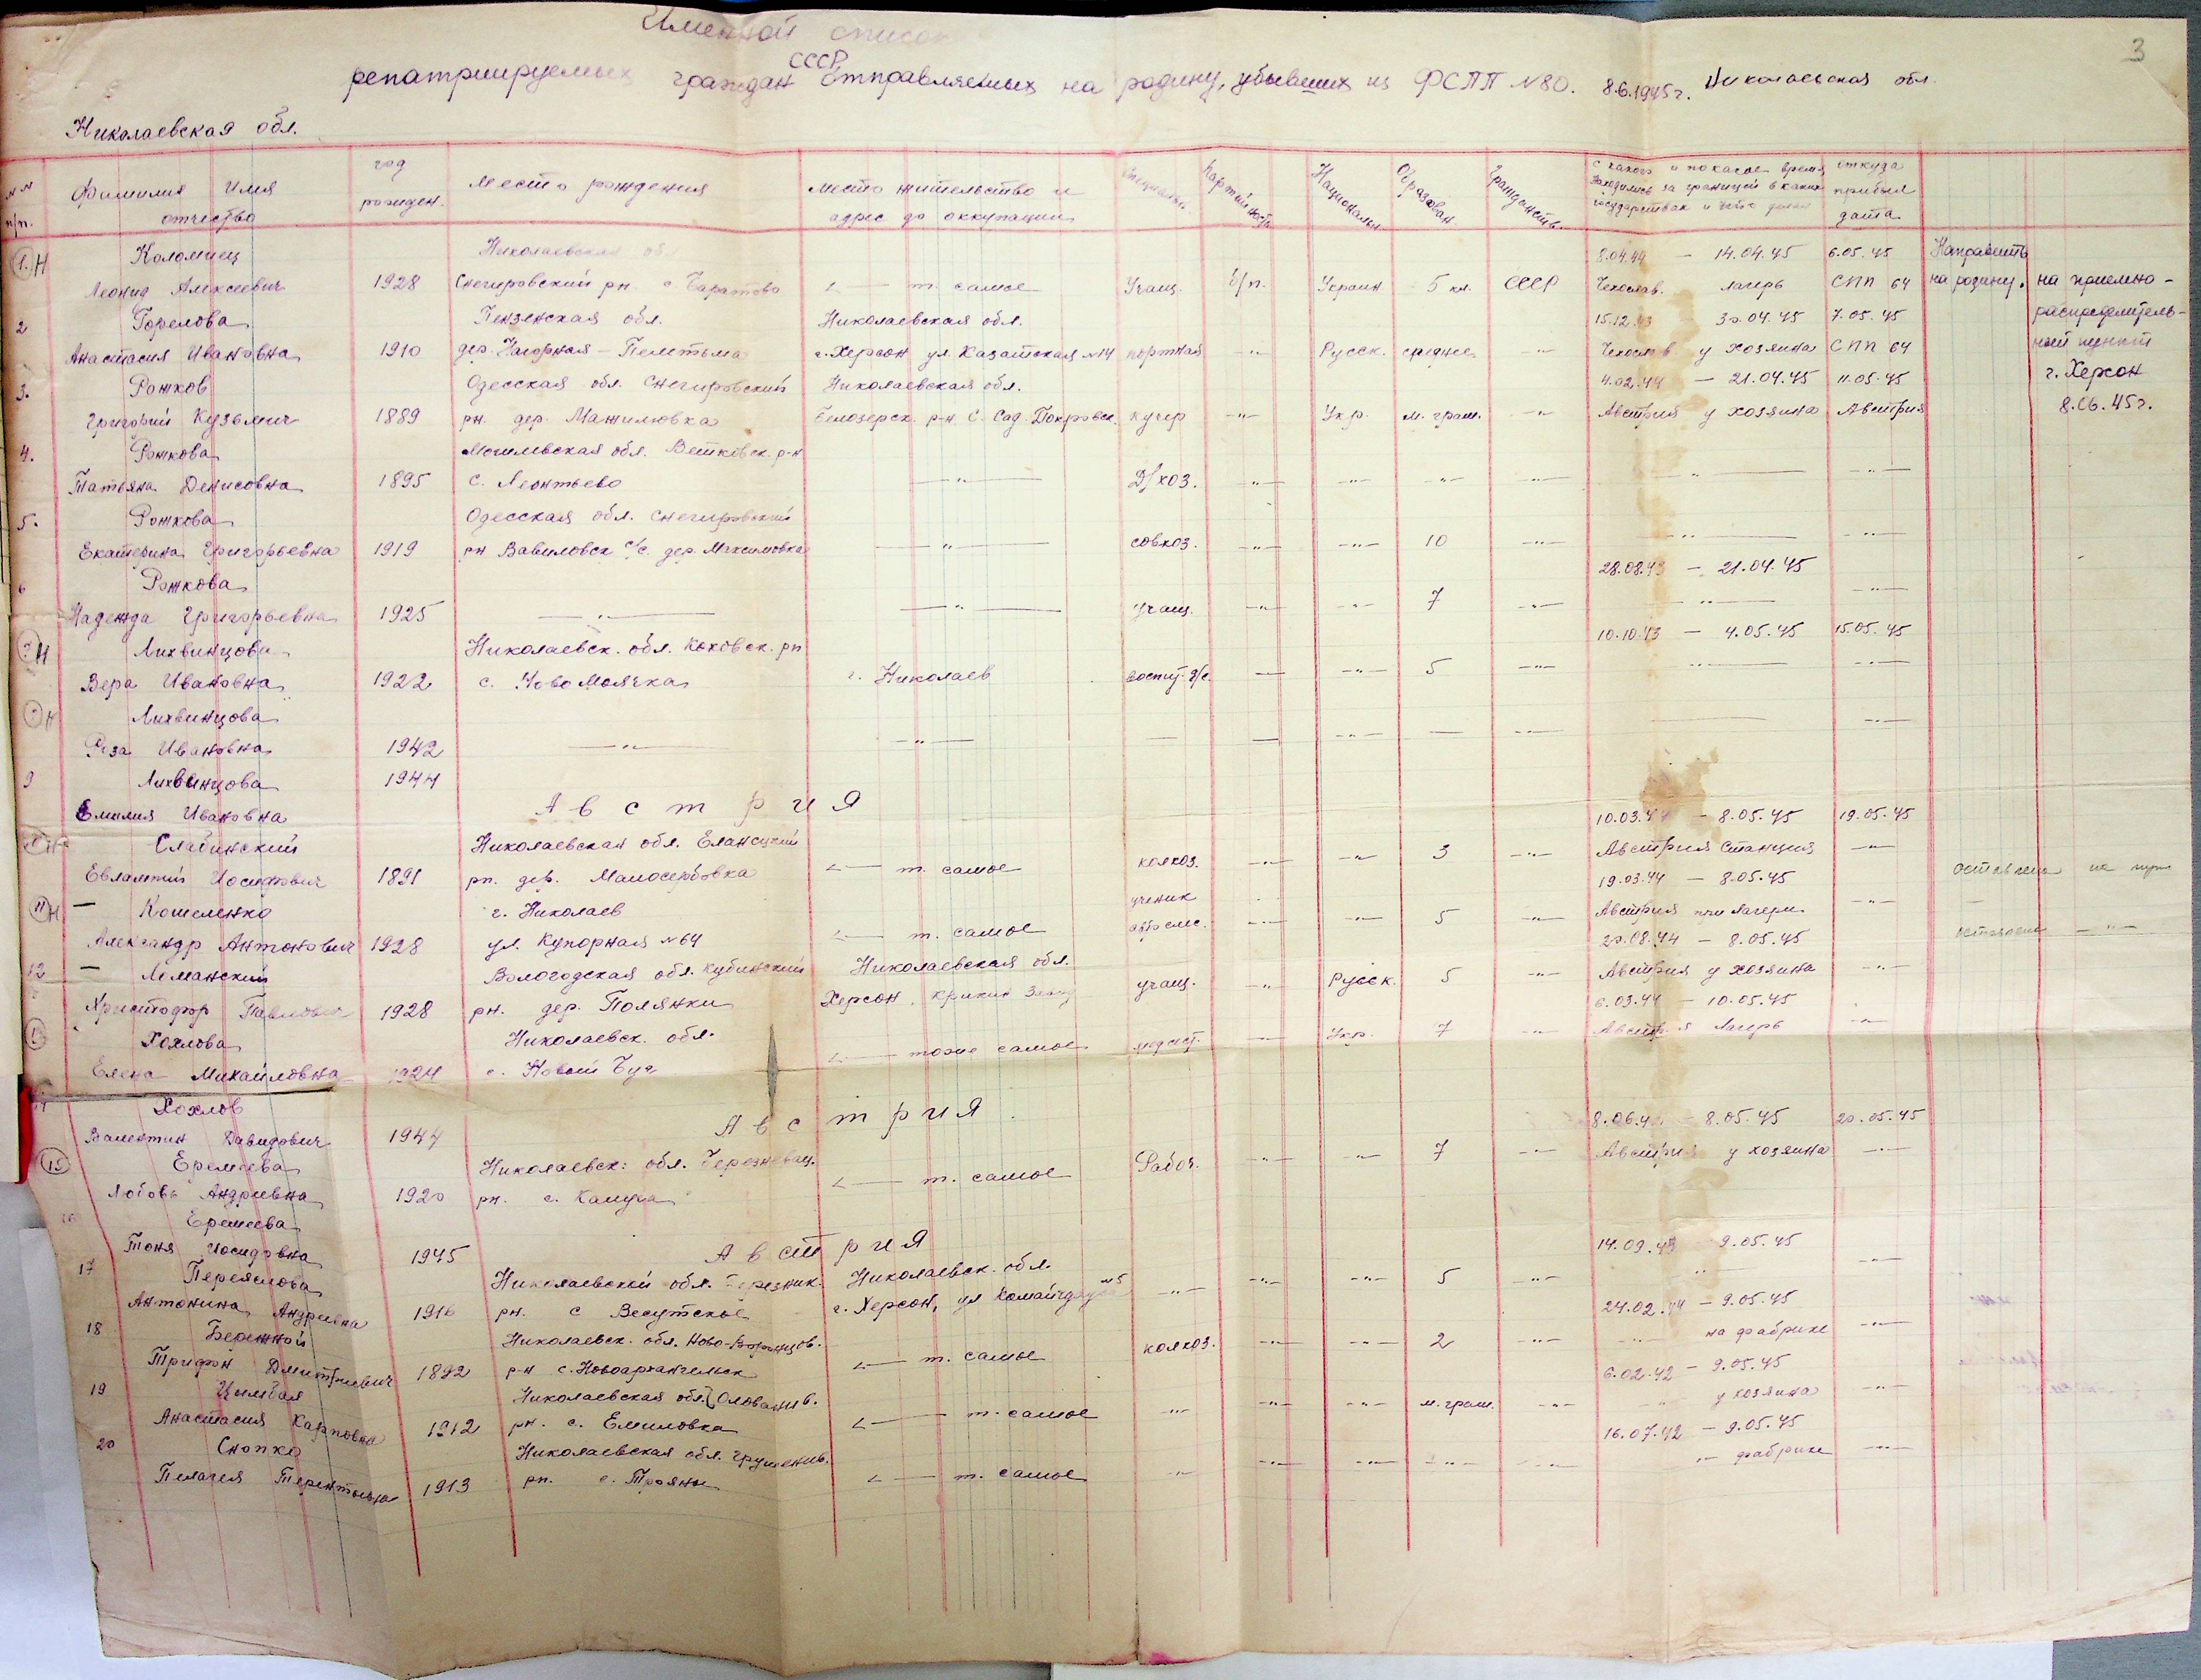 Именной список
3
репатриируемых граждан СССР отправляемых на родину, убывших из ФСПП №80. 8.6.1945г. Николаевская обл.
Николаевская обл.
№№ п/п. Фамилия Имя отчество год рожден. место рождения место жительство и адрес до оккупации Партийность Националь Образован. Гражданств. с какого и по какое время находились за границей в каких государствах и чего делал откуда прибыл дата
1. Н Коломиец Николаевская обл. 8.04.44 — 14.04.45 6.05.45 Направить
Леонид Алексеевич 1928 Снегировский рн. с. Баратово т. самое Учащ. б/п. Украин 5 кл. СССР Чехослав. лагерь СПП 64 на родину. на приемно-
2 Горелова Пензенская обл. Николаевская обл. 15.12.43 — 30.04.45 7.05.45 распределитель-
Анастасия Ивановна 1910 дер. Нагорная-Пелетьма г. Херсон ул. Казатская №14 портная -"- Русск. среднее -"- Чехослов у хозяина СПП 64 ный пункт
3. Рожков Одесская обл. Снегировский Николаевская обл. 4.02.44 — 21.04.45 11.05.45 г. Херсон
Григорий Кузьмич 1889 рн. дер. Мажиловка Белозерск. р-н. С. Сад. Покровск. кучер -"- Укр. м. грам. -"- Австрия у хозяина Австрия 8.06.45г.
4. Рожкова Могилевская обл. Ветковск. р-н
Татьяна Денисовна 1895 с. Леонтьево -"- Д/хоз. -"- -"- -"- -"- -"- -"-
5. Рожкова Одесская обл. Снегировский
Екатерина Григорьевна 1919 рн Вавиловск с/с. дер. Максимовка -"- совхоз. -"- -"- 10 -"- -"- -"-
6 Рожкова 28.08.43 — 21.04.45
Надежда Григорьевна 1925 -"- -"- учащ. -"- -"- 7 -"- -"- -"-
7 Н Лихвинцова Николаевск. обл. Каховск. рн 10.10.43 — 4.05.45 15.05.45
Вера Ивановна 1922 с. Ново Маячка г. Николаев воспит. д/с. — -"- 5 -"- -"- -"-
Н Лихвинцова
Роза Ивановна 1942 -"- -"- — — -"- — -"- — -"-
9 Лихвинцова 1944
Емилия Ивановна Австрия 10.03.44 — 8.05.45 19.05.45
Слабинский Николаевская обл. Еланецкий Австрия станция -"-
Евлампий Иосифович 1891 рн. дер. Малосербовка т. самое колхоз. -"- -"- 3 -"- 19.03.44 — 8.05.45 оставлен
11 Н — Кошеленко г. Николаев ученик Австрия при лагери -"-
Александр Антонович 1928 ул. Купорная №64 т. самое автослес. -"- -"- 5 -"- 20.08.44 — 8.05.45 оставлен -"-
12 — Леманский Вологодская обл. Кубинский Николаевская обл. Австрия у хозяина -"-
Христофор Павлович 1928 рн. дер. Полянки Херсон. учащ. -"- Русск. 5 -"- 6.03.44 — 10.05.45
13 Хохлова Николаевск. обл. Австрия Лагерь -"-
Елена Михайловна 1924 с. Новый Буг тоже самое медсест. -"- Укр. 7 -"-
14 Хохлов
Валентин Давидович 1944 Австрия 8.05.45 20.05.45
15 Еремеева Николаевск. обл. Березневац. Австрия у хозяина -"-
Любовь Андреевна 1920 рн. с. Калуга т. самое Рабоч. -"- -"- 7 -"-
16 Еремеева
Тоня Иосифовна 1945 Австрия 14.09.43 9.05.45
17 Переяслова Николаевской обл. Березник. Николаевск. обл.
Антонина Андреевна 1916 рн. с Висутское г. Херсон, ул №5 -"- -"- -"- 5 -"- -"- 24.02.44 — 9.05.45
18 Бережной Николаевск. обл. Ново-Воронцов. -"- на фабрике -"-
Трифон Дмитриевич 1892 р-н с. Новоархангельск т. самое колхоз. -"- -"- 2 -"- 6.02.42 — 9.05.45
19 Цимбал Николаевская обл. у хозяина -"-
Анастасия Карповна 1912 рн. с. Емиловка т. самое -"- -"- -"- м. грам. -"- 16.07.42 — 9.05.45
20 Снопко Николаевская обл. Грушенив. -"- фабрике -"-
Пелагея Терентьевна 1913 рн. с. Трояны т. самое -"- -"- -"- -"- -"-